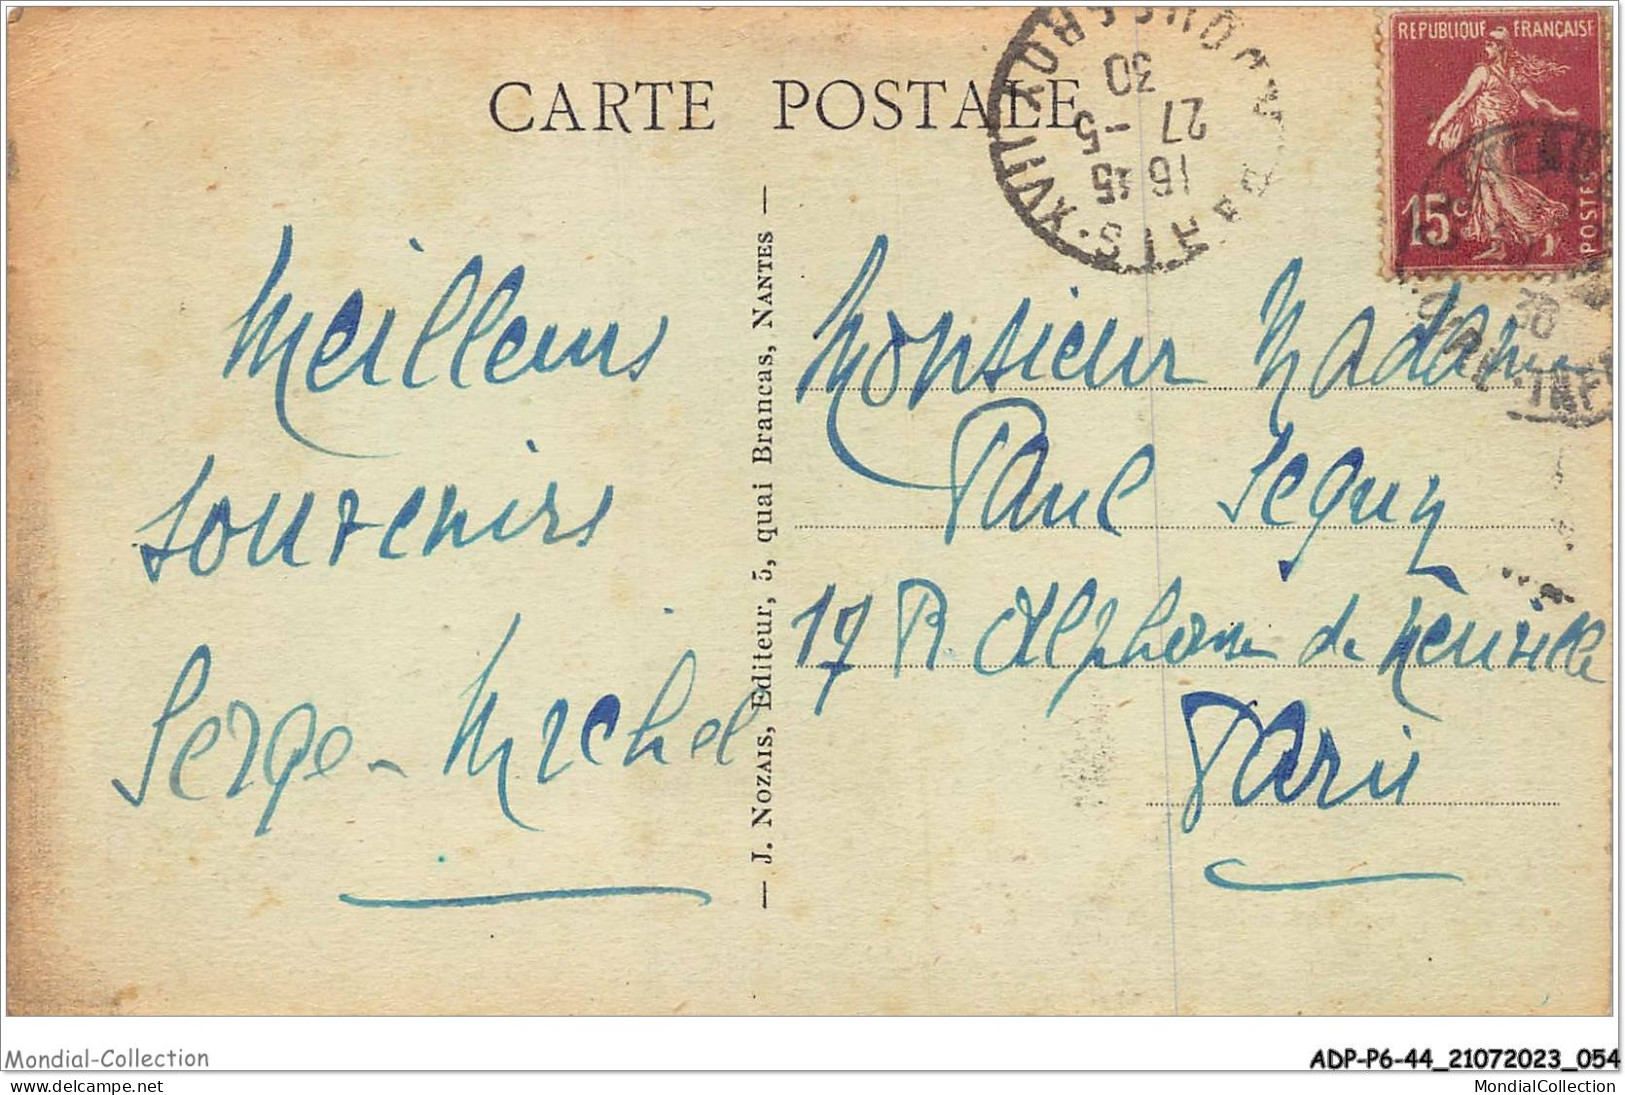 CARTE POSTALE
RÉPUBLIQUE FRANÇAISE
15c
POSTES
16 45
27 - 5
30
Meilleurs
souvenirs
Serge-Michel
— J. NOZAIS, Editeur, 5, quai Brancas, NANTES —
Monsieur Madame
Paul Seguy
17 R Alphonse de Neuville
Paris
Mondial-Collection
delcampe.net
ADP-P6-44_21072023_054
MondialCollection